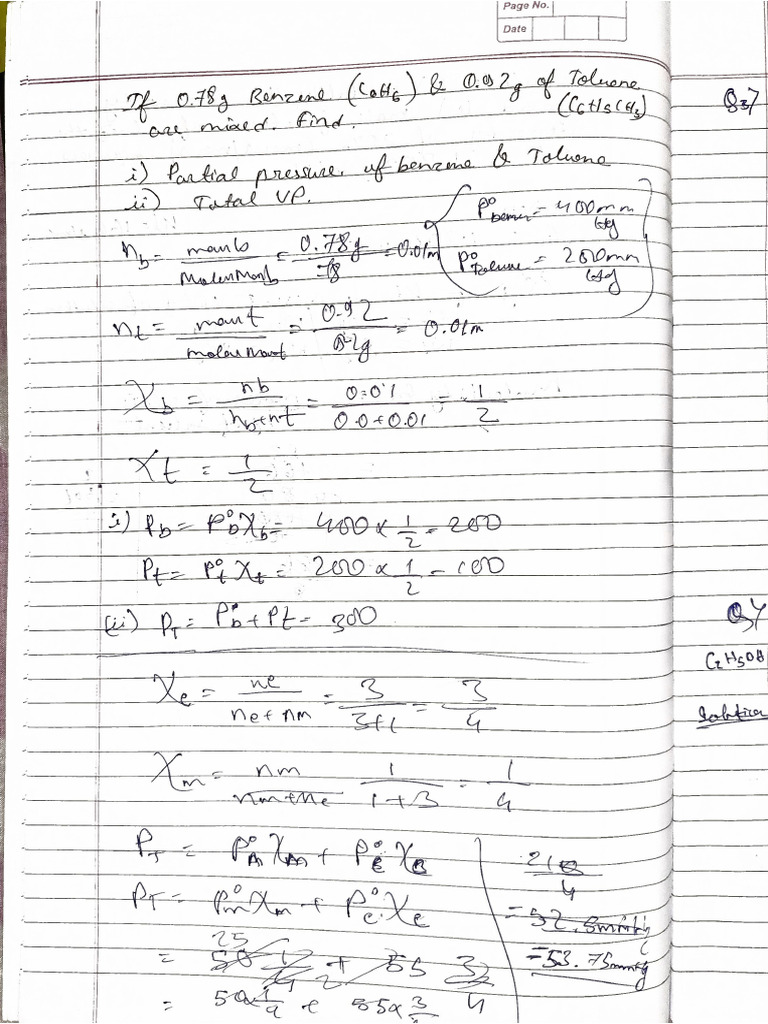 Page No.
Date
If 0.78g Benzene (C6H6) & 0.92g of Toluene
(C6H5CH3)
are mixed. Find.
i) Partial pressure of benzene & Toluene
ii) Total VP.
P°benzen = 400mm Hg
P°Toluene = 200mm Hg
nb = mass b / Molar Mass b = 0.78g / 78 = 0.01m
nt = mass t / molar Mass t = 0.92 / 92g = 0.01m
Xb = nb / nb+nt = 0.01 / 0.0+0.01 = 1/2
Xt = 1/2
i) Pb = P°b Xb = 400 x 1/2 = 200
Pt = P°t Xt = 200 x 1/2 = 100
(ii) PT = P°b + Pt = 300
Xe = ne / ne+nm = 3 / 3+1 = 3/4
Xm = nm / nm+ne 1 / 1+3 = 1/4
PT = P°A XA + P°B XB
PT = P°m Xm + P°e Xe
= 50 x 1/4 + 55 x 3/4
= 53.75mmHg
Q37
C2H5OH
Solution